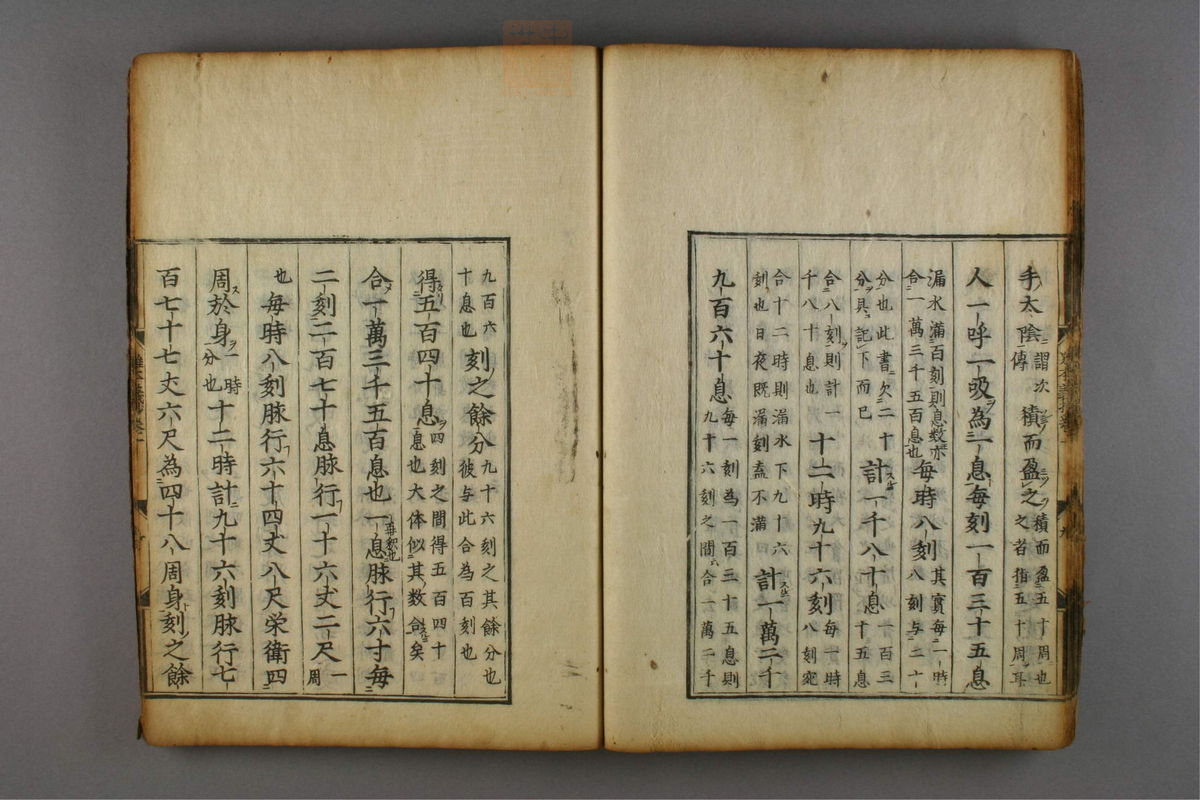 手太陰謂次傳積而盈之積而盈五十周也之者指五十周耳
人一呼一吸為一息每刻一百三十五息
漏水滿百刻則息数亦合一萬三千五百息也每時八刻其實每一時八刻与二十
分也此書欠二十分具記下而已計一千八十息一百三十五息
合八刻則計一千八十息也十二時九十六刻每一時八刻窕
合十二時則漏水下九十六刻也日夜既漏刻盍不滿計一萬二千
九百六十息每一刻為一百三十五息則九十六刻之間合一萬二千
九百六十息也刻之餘分九十六刻之其餘分也彼與此合為百刻也
得五百四十息四刻之間得五百四十息也大体似其数合矣
合一萬三千五百息也再釈也一息脉行六寸每
二刻二百七十息脉行一十六丈二尺一周
也每時八刻脉行六十四丈八尺栄衛四
周於身一時分也十二時計九十六刻脉行七
百七十七丈六尺為四十八周身刻之餘